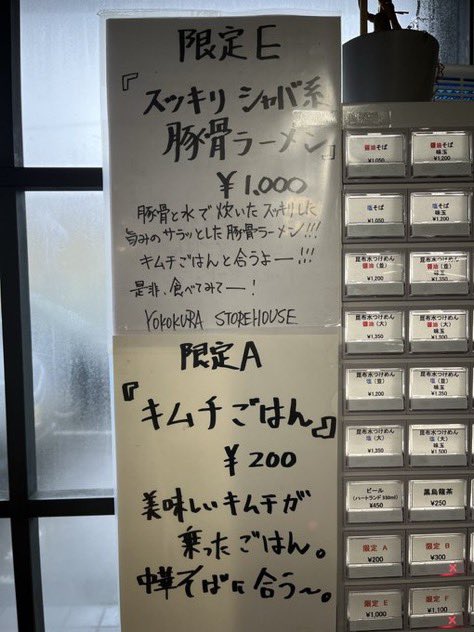 限定E
『スッキリ シャバ系
豚骨ラーメン』
￥1,000
豚骨と水で炊いたスッキリした
旨みのサラッとした豚骨ラーメン!!!
キムチごはんと合うよー!!!
是非、食べてみてー!
YOKOKURA STOREHOUSE
限定A
『キムチごはん』
￥200
美味しいキムチが
乗ったごはん。
中華そばに合う〜。
醤油そば
¥1,050
醤油そば
味玉
¥1,200
塩そば
¥1,050
塩そば
味玉
¥1,200
昆布水つけめん
醤油(並)
¥1,200
昆布水つけめん
醤油(並)
味玉
昆布水つけめん
醤油(大)
¥1,350
昆布水つけめん
醤油(大)
味玉
¥1,500
昆布水つけめん
塩(並)
¥1,200
昆布水つけめん
塩(並)
味玉
¥1,350
昆布水つけめん
塩(大)
¥1,350
昆布水つけめん
塩(大)
味玉
¥1,500
ビール
(ハートランド330ml)
¥450
黒烏龍茶
¥250
限定 A
¥200
限定 B
¥300
限定 E
¥1,000
限定 F
¥1,100